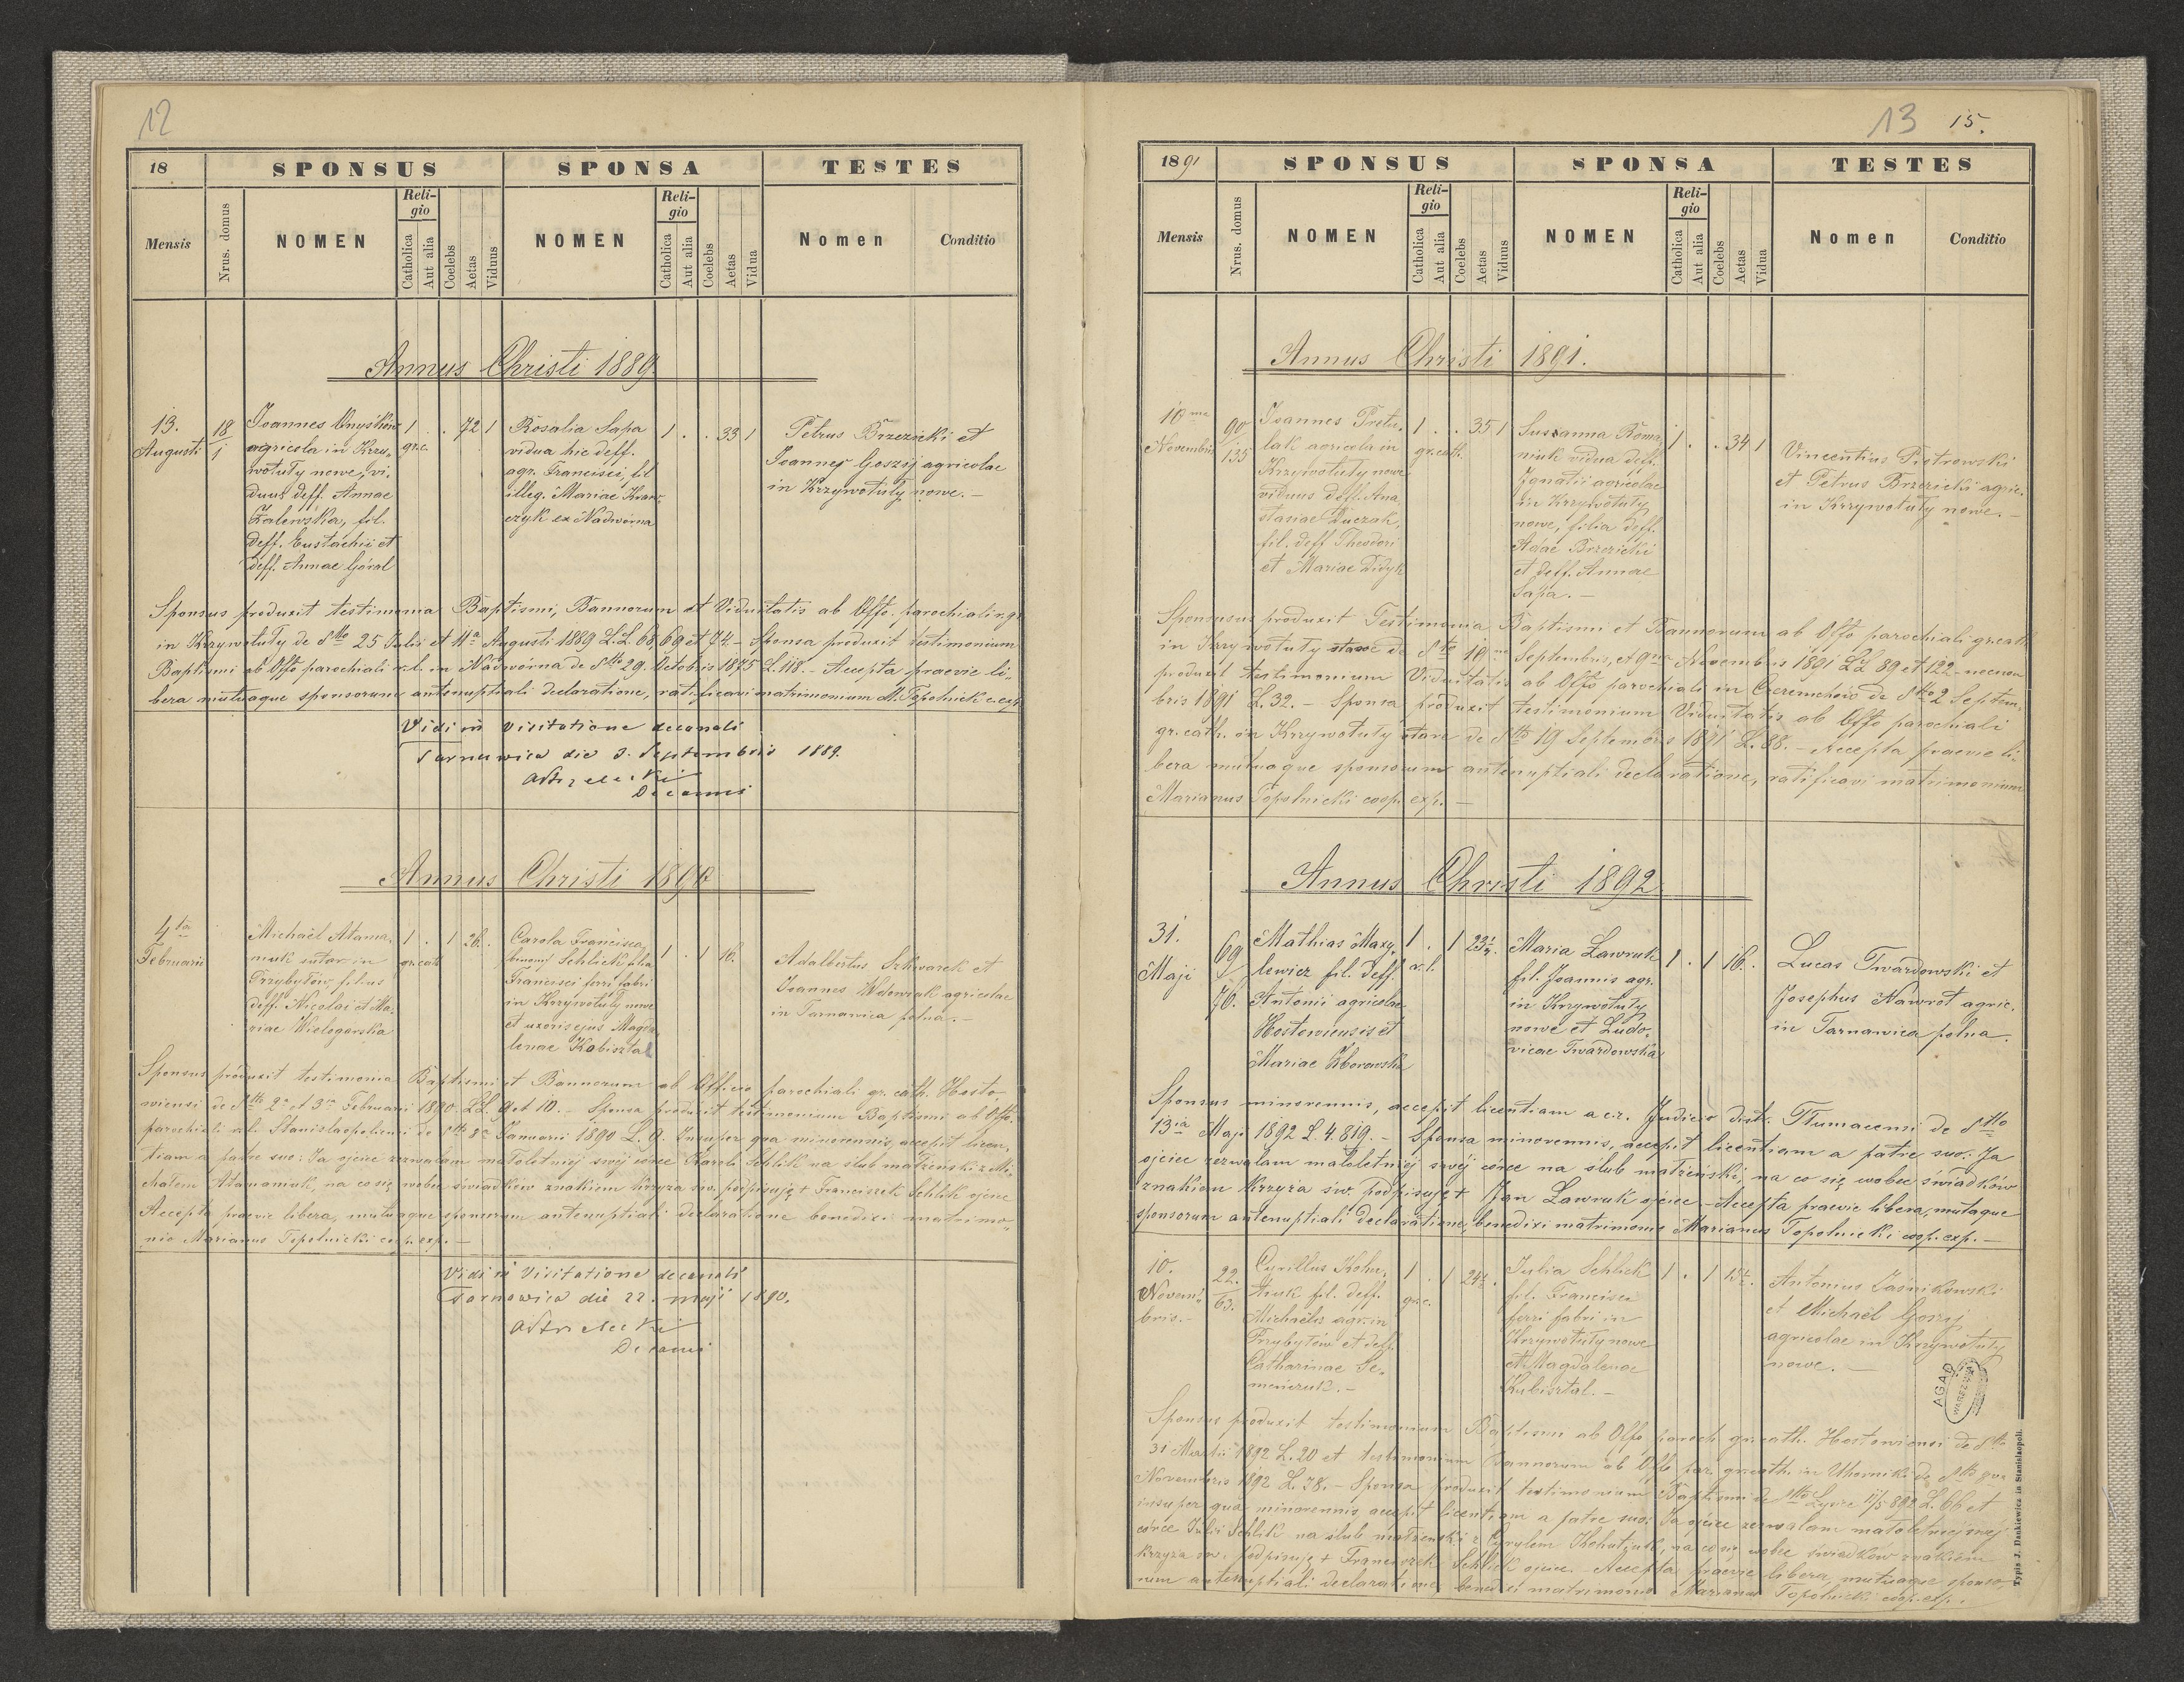 12
18 SPONSUS SPONSA TESTES
Mensis Nrus. domus NOMEN Religio Catholica Aut alia Coelebs Aetas Viduus NOMEN Religio Catholica Aut alia Coelebs Aetas Vidua Nomen Conditio
Annus Christi 1889
13. Augusti
18
1
Joannes Onyśkiw
agricola in Krzy-
wotuły nowe, vi-
duus deff. Annae
Zalewska, fil.
deff. Eustachii et
deff. Annae Góral
1 . . 72 1
gr.c.
Rosalia Sapa
vidua hic deff.
agr. Francisci, fil.
illeg. Mariae Kraw-
czyk ex Nadwórna
1 . . 33 1
Petrus Brzezicki et
Joannes Goszij agricolae
in Krzywotuły nowe. —
Sponsus produxit testimonia Baptismi, Bannorum et Viduitatis ab Offo. parochiali r. g.
in Krzywotuły de dtto 25 Julii et 11a Augusti 1889 L.L. 68, 69 et 74. – Sponsa produxit testimonium
Baptismi ab Offo parochiali r.l. in Nadwórna de dtto 29. Octobris 1875 L. 118. – Accepta praevie li-
bera mutuaque sponsorum antenuptiali declaratione, ratificavi matrimonium M. Topolnicki c. exp.
Vidi in visitatione decanali
Tarnawica die 3. Septembris 1889.
Decanus
Annus Christi 1890
4ta
Februarii
Michaël Atama-
niuk sutor in
Przybyłów, filius
deff. Nicolai et Ma-
riae Wielogorska
1 . 1 26.
gr.cath
Carola Francisca
binom. Schlick filia
Francisci ferri fabri
in Krzywotuły nowe
et uxoris ejus Magda-
lenae Kobisztal
1 . 1 16.
Adalbertus Szkwarek et
Joannes Wdowiak agricolae
in Tarnawica polna. —
Sponsus produxit testimonia Baptismi et Bannorum ab Officio parochiali gr. cath. Hosto-
wiensi de dtto 2a et 3a Februarii 1890. LL. 9 et 10. – Sponsa produxit testimonium Baptismi ab Offo.
parochiali r.l. Stanislaopoliensi de dtto 8a Januarii 1890 L. 9. Insuper qua minorennis, accepit licen-
tiam a patre suo: Ja ojciec zezwalam małoletniej swéj córce Karoli Schlik na ślub małżeński z Mi-
chałem Atamaniuk, na co się wobec świadków znakiem krzyża św. podpisuję + Franciszek Schlik ojciec
Accepta praevie libera, mutuaque sponsorum antenuptiali declaratione benedixi matrimo-
nio Marianus Topolnicki coop. exp. —
Vidi in Visitatione decanali
Tarnawica die 22. maji 1890.
Decanus
13 15.
1891 SPONSUS SPONSA TESTES
Mensis Nrus. domus NOMEN Religio Catholica Aut alia Coelebs Aetas Viduus NOMEN Religio Catholica Aut alia Coelebs Aetas Vidua Nomen Conditio
Annus Christi 1891.
10ma
Novembris
90
135
Joannes Pretu-
lak agricola in
Krzywotuły nowe
viduus deff. Ana-
stasiae Duczak,
fil. deff Theodori
et Mariae Didyk
1 . . 35 1
gr.cath.
Sussanna Roma-
niuk vidua deff.
Ignatii agricolae
in Krzywotuły
nowe, filia deff.
Adae Brzezicki
et deff. Annae
Sapa. —
1 . . 34 1
Vincentius Piotrowski
et Petrus Brzezicki agric.
in Krzywotuły nowe. —
Sponsusus produxit Testimonia Baptismi et Bannorum ab Offo parochiali gr.cath
in Krzywotuły stare de dto 19na Septembris, et 9na Novembris 1891 LL 89 et 122. – necnon
produxit testimonium Viduitatis ab Offo parochiali in Czeremchów de dtto 2 Septem-
bris 1891 L. 32. – Sponsa produxit testimonium Viduitatis ab Offo parochiali
gr. cath. in Krzywotuły stare de dtto 19 Septembris 1891 L. 88. – Accepta praevie li-
bera mutuaque sponsorum antenuptiali declaratione, ratificavi matrimonium
Marianus Topolnicki coop. exp. —
Annus Christi 1892
31.
Maji
69
76.
Mathias Maxy-
lewicz fil. deff.
Antonii agricolae
Hostowiensis et
Mariae Zborowska
1 . 1 23½.
r.l.
Maria Ławruk
fil. Joannis agr.
in Krzywotuły
nowe et Ludo-
vicae Twardowska
1 . 1 16.
Lucas Twardowski et
Josephus Nawrot agric.
in Tarnawica polna.
Sponsus minorennis, accepit licentiam a c.r. Judicio distr. Tłumacensi de dtto
13ia Maji 1892 L. 4.819. – Sponsa minorennis, accepit licentiam a patre suo: Ja
ojciec zezwalam małoletniéj swéj córce na ślub małżeński, na co się wobec świadków
znakiem krzyża św. podpisuję + Jan Ławruk ojciec – Accepta praevie libera, mutaque
sponsorum antenuptiali declaratione, benedixi matrimonio Marianus Topolnicki coop. exp. —
10.
Novem-
bris. –
22.
63.
Cyrillus Kohu-
tiuk fil. deff.
Michaëlis agr. in
Przybyłów et deff.
Catharinae Se-
meńczuk. —
1 . 1 24½.
gr.c.
Julia Schlick
fil. Francisci
ferri fabri in
Krzywotuły nowe
et Magdalenae
Kubisztal. —
1 . 1 15½.
Antonius Jaśnikowski
et Michaël Goszij
agricolae in Krzywotuły
nowe. —
Sponsus produxit testimonium Baptismi ab Offo paroch. gr.cath. Hostowiensi de dtto
31 Martii 1892 L. 20 et testimonium Bannorum ab Offo par. gr.cath. in Uhorniki de dtto 9na
Novembris 1892 L. 78. – Sponsa produxit testimonium Baptismi de dtto L. 66 et
insuper qua minorennis, accepit licentiam a patre suo: Ja ojciec zezwalam małoletniej swéj
córce Julii Schlik na ślub małżeński z Cyrylem Kohutiuk, na co się wobec świadków znakiem
krzyża św. podpisuję + Franciszek Schlick ojciec. Accepta praevie libera, mutuaque sponso-
rum antenuptiali declaratione benedixi matrimonio Marianus Topolnicki coop. exp.
AGAD
WARSZAWA
Typis J. Dankiewicz in Stanislaopoli.